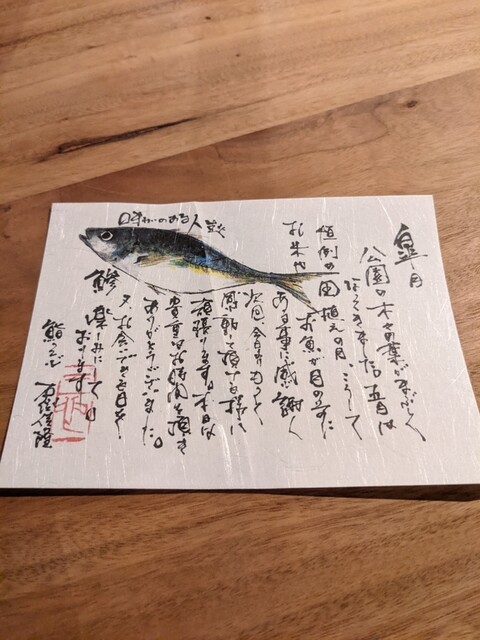 皐月
公園の木々の葉がまぶしく
なってきました。五月は
恒例の田植えの月、こうして
お米や
お魚が目の前に
ある事に感謝し
次回、今日よりもっと
感動して頂ける様に
頑張ります。本日は
貴重なお時間を頂き
ありがとうございました。
又、お会いできる日を
楽しみにして
おります
味わいのある人
鰺